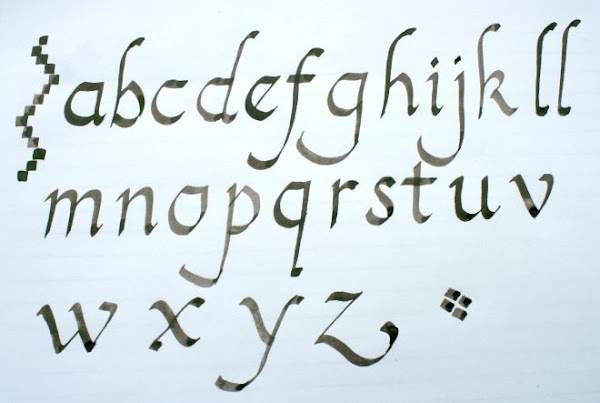 abcdefghijkll
mnopqrstuv
wxyz